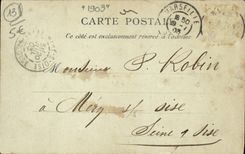 *1903*
13
5€
CARTE POSTALE
Ce côté est exclusivement réservé à l'adresse
MARSEILLE
Monsieur P. Robin
à Méry sur oise
Seine & Oise